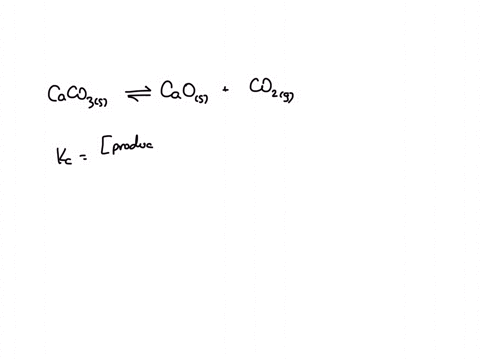 CaCO₃(s) ⇌ CaO(s) + CO₂(g)
Kc = [produc